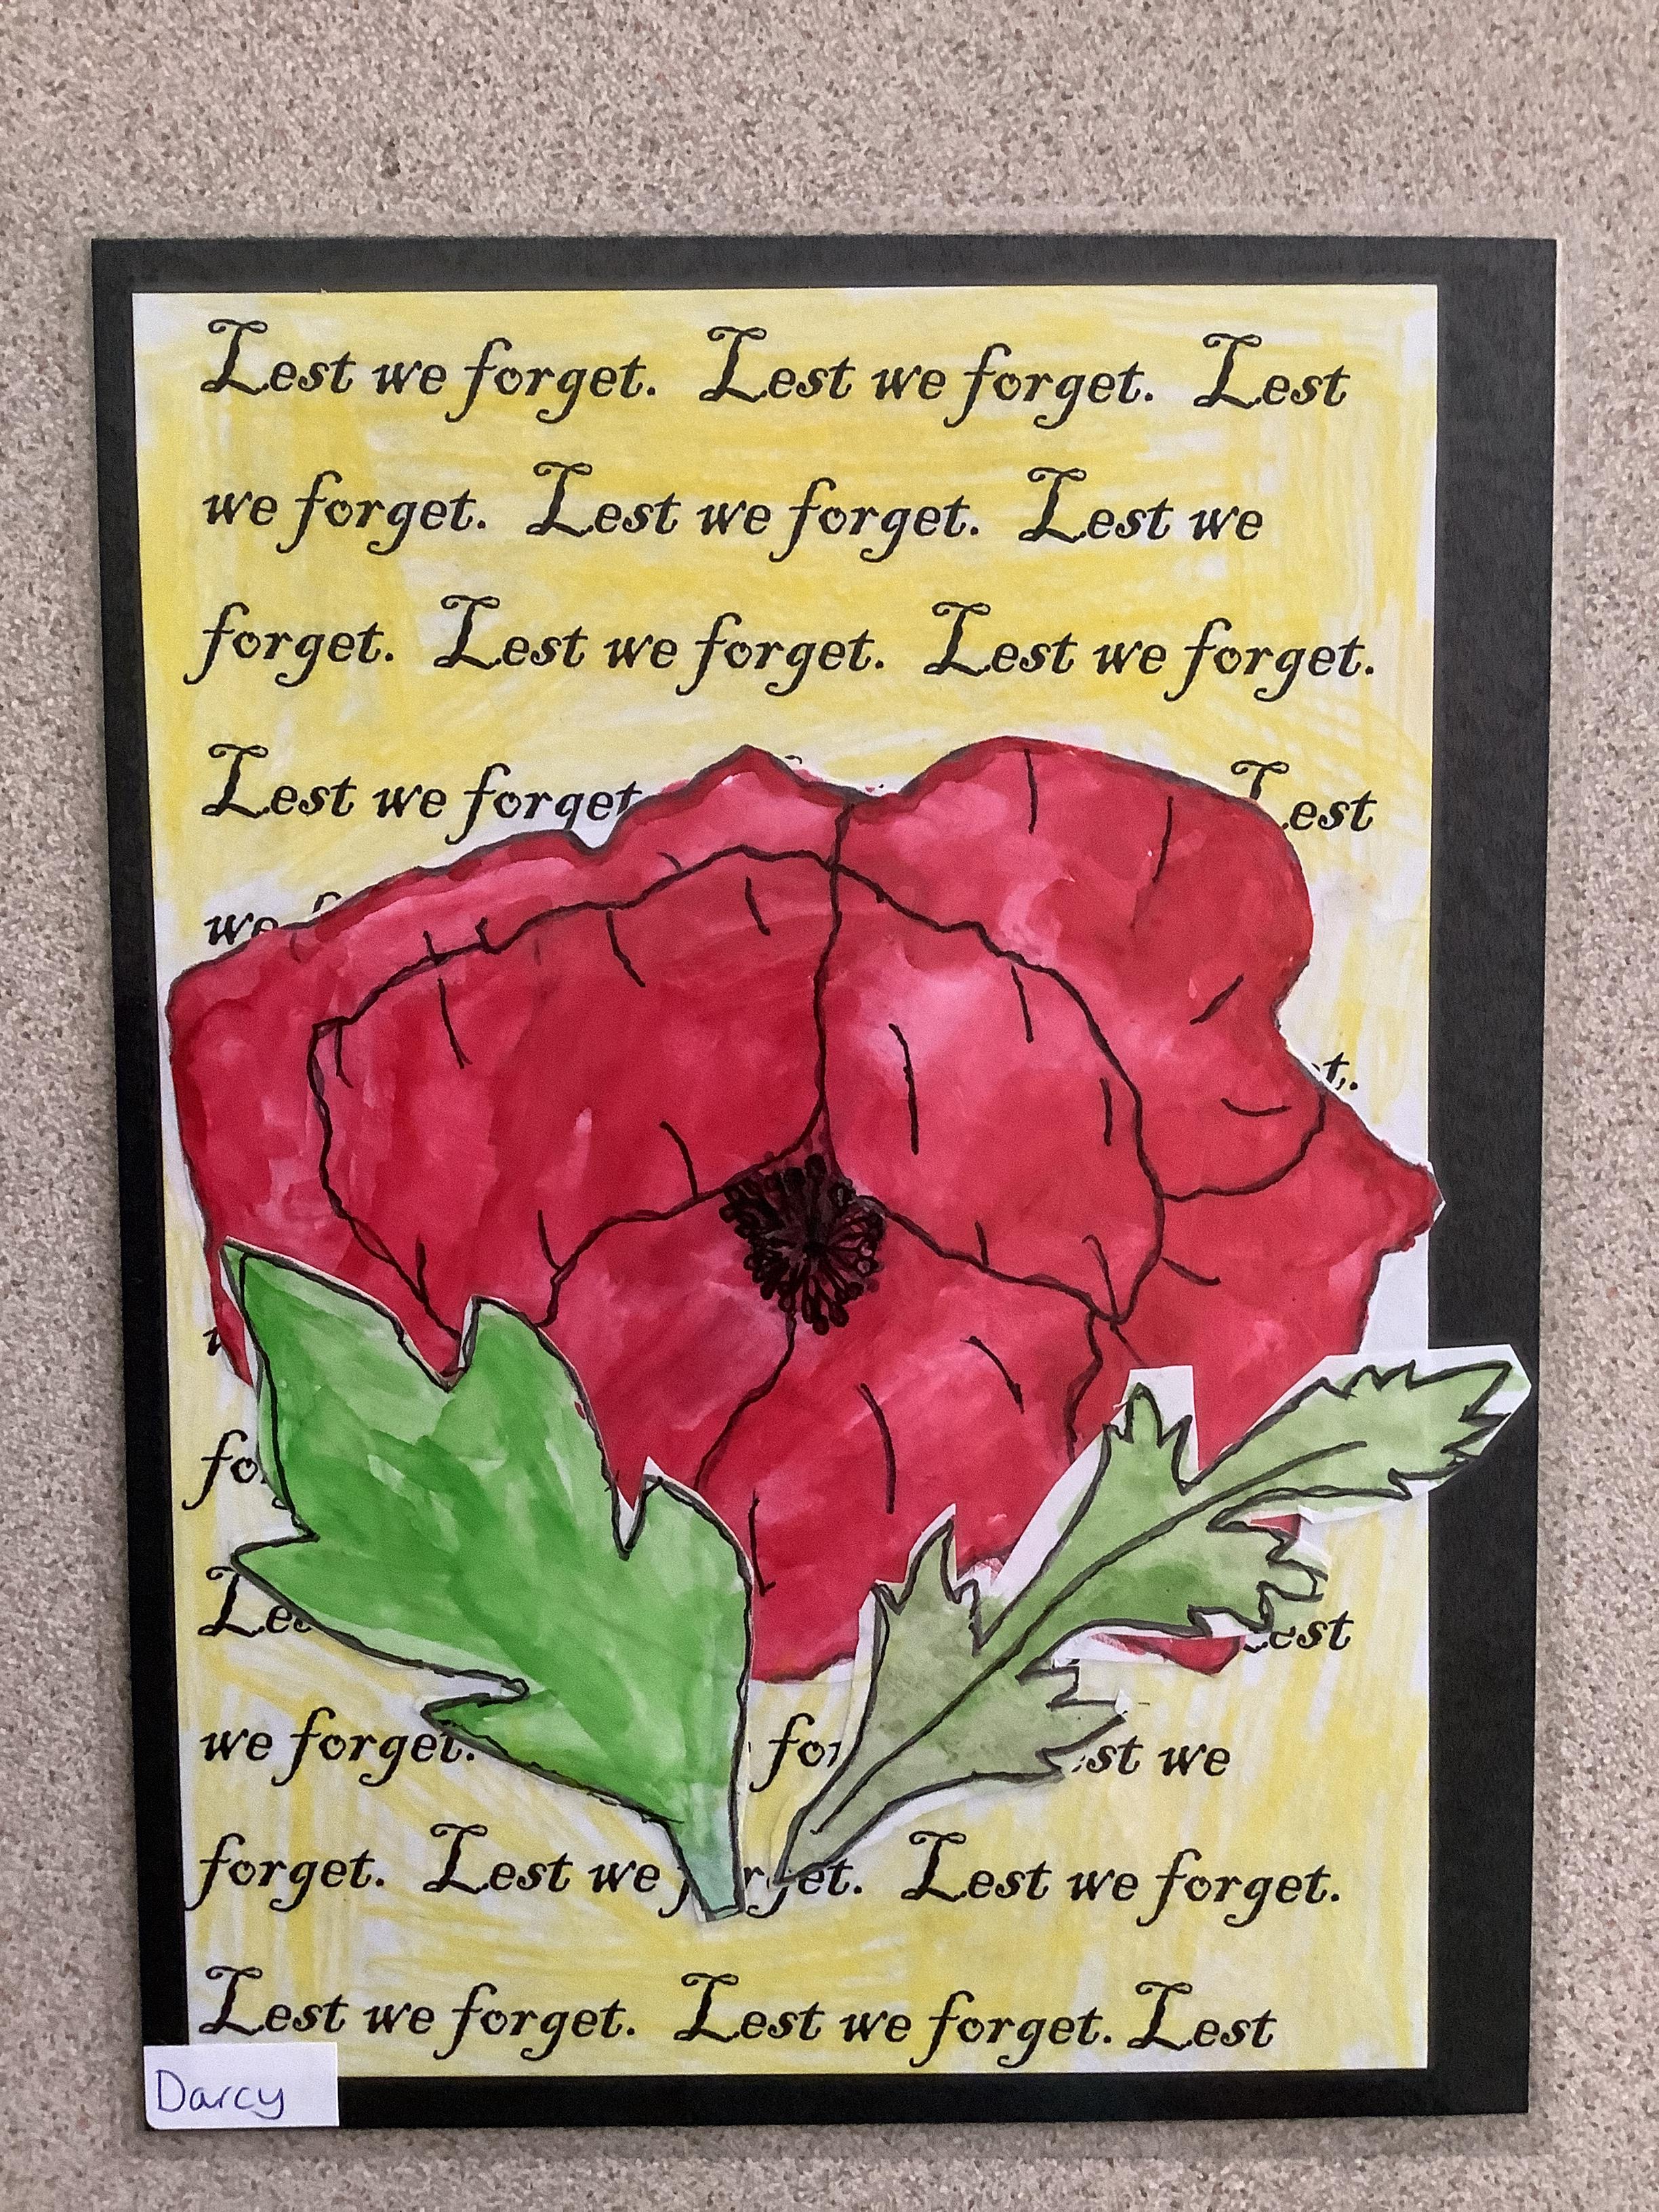 Lest we forget. Lest we forget. Lest
we forget. Lest we forget. Lest we
forget. Lest we forget. Lest we forget.
Lest we forget Lest
we
Lest
we forget. we
forget. Lest we forget. Lest we forget.
Lest we forget. Lest we forget. Lest
Darcy